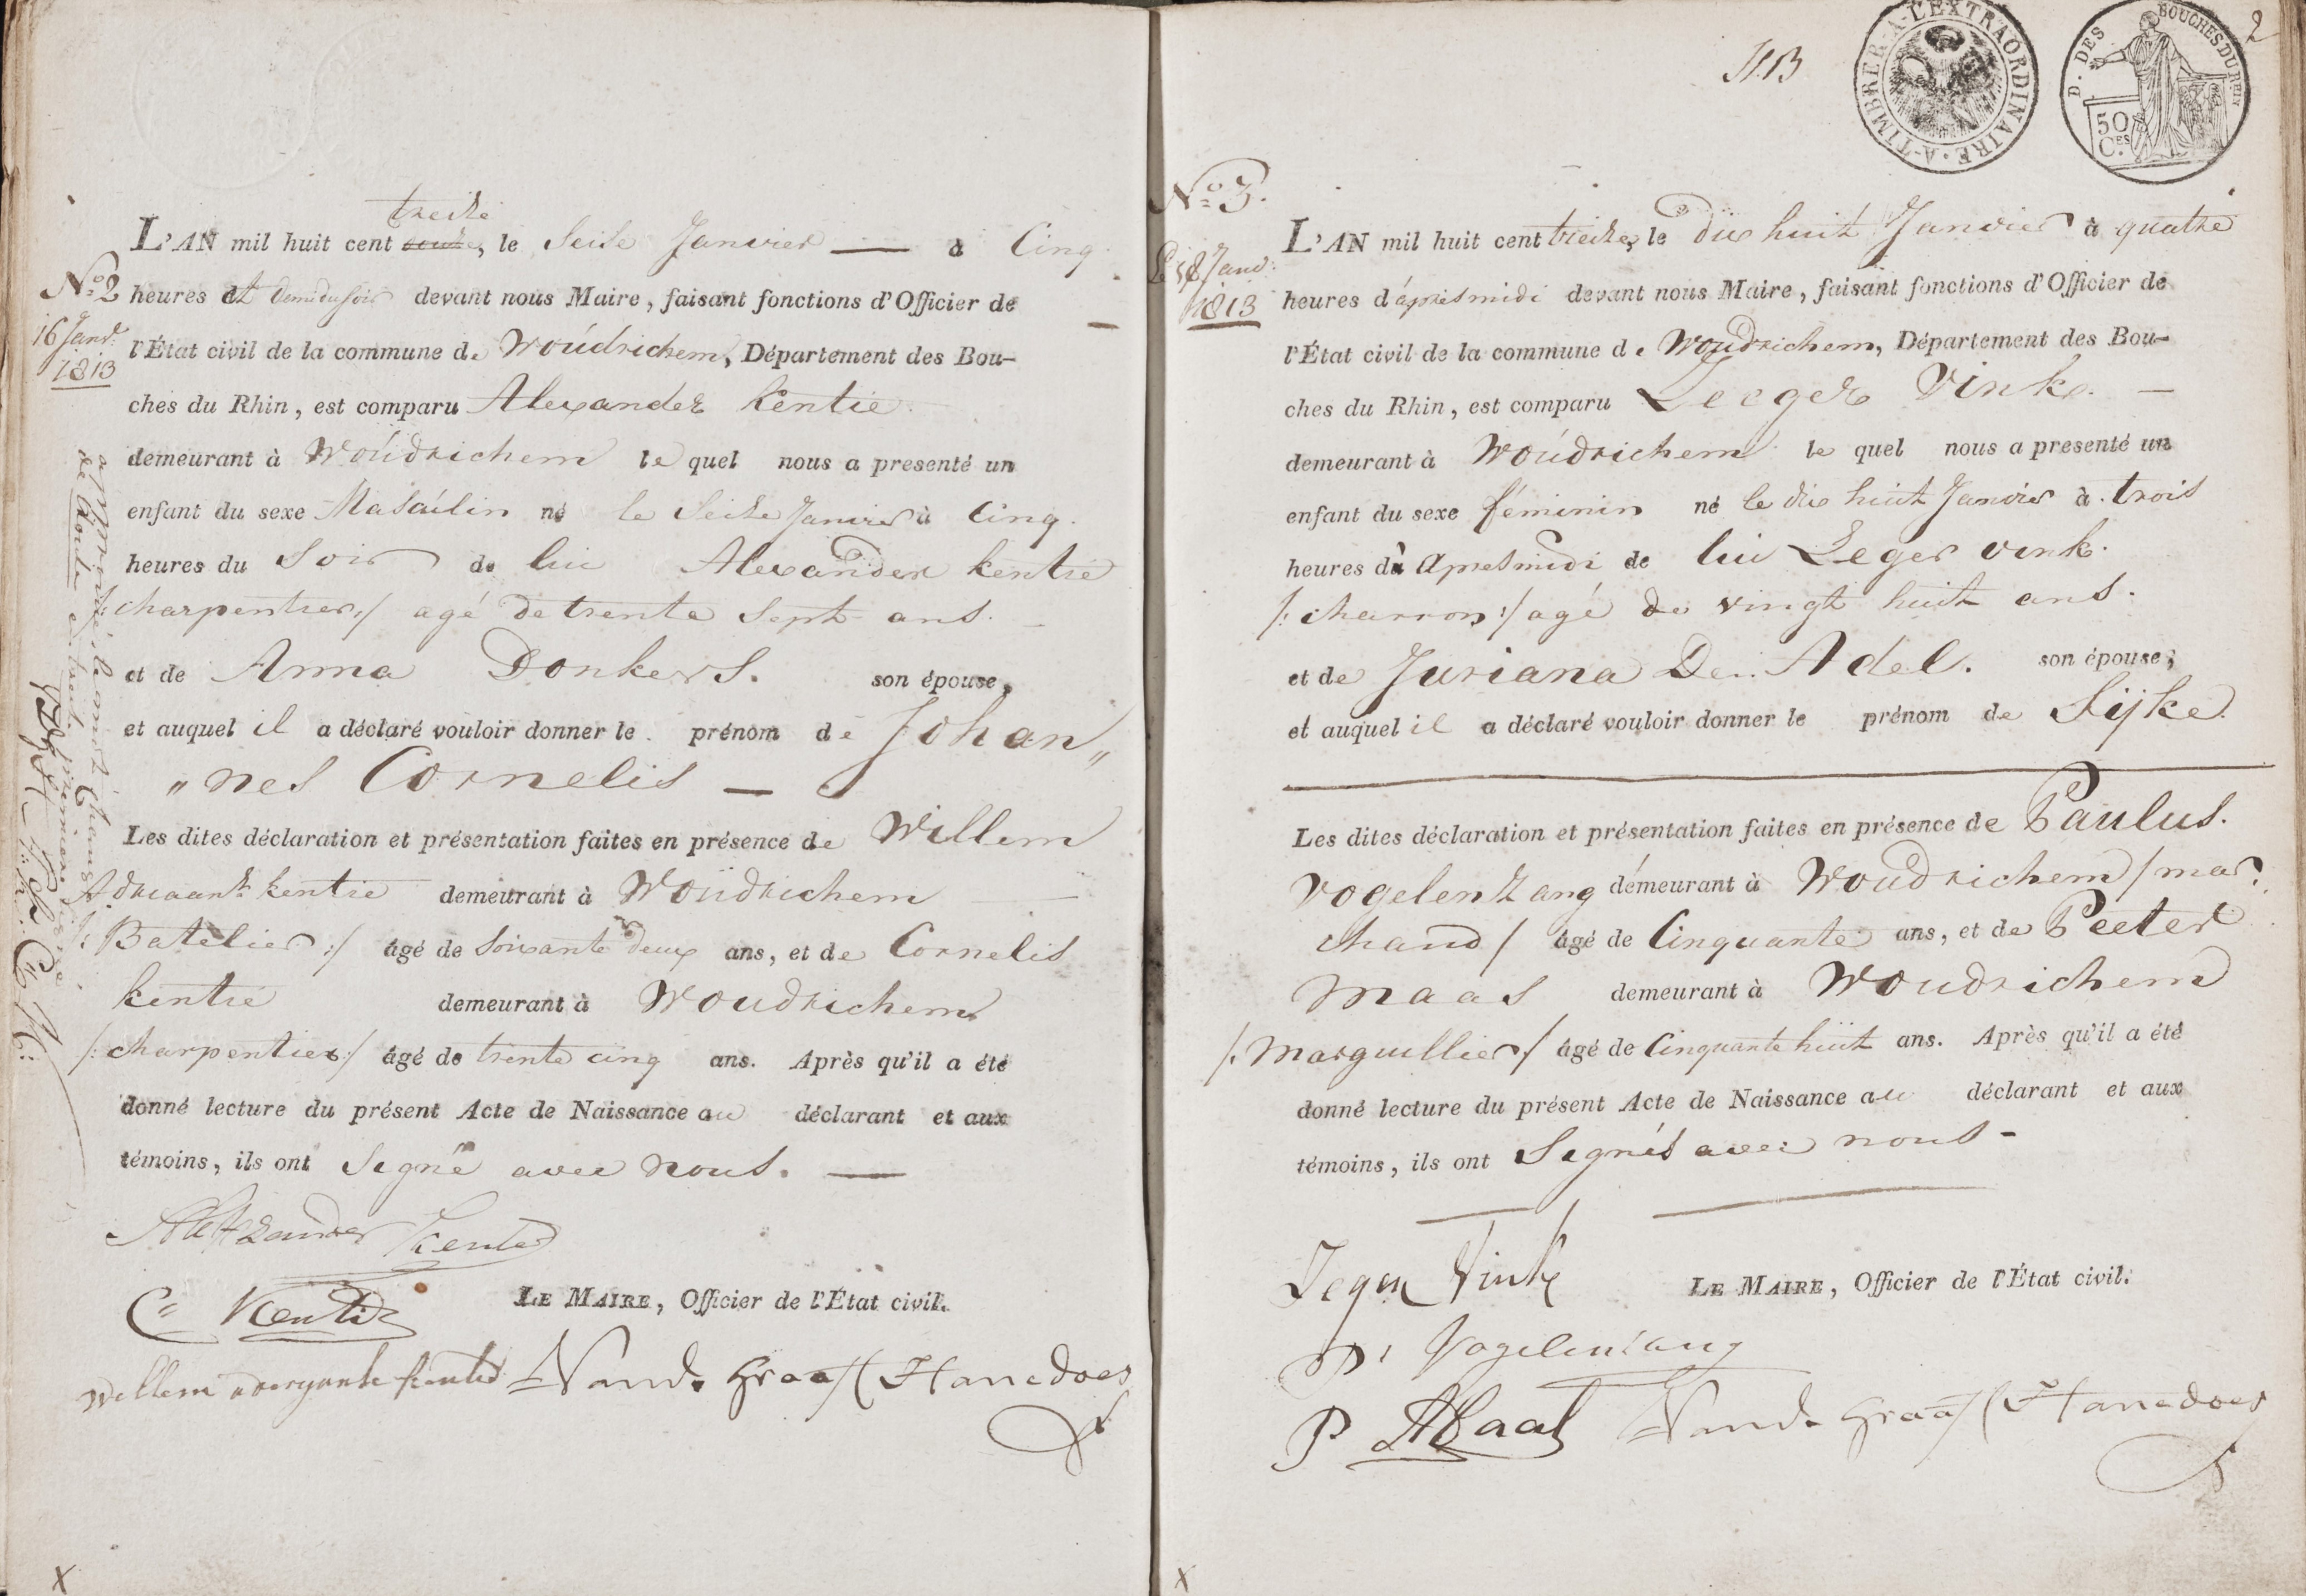 treize
L'AN mil huit cent douze, le Seize Janvier — à Cinq
No 2 heures et demi du soir devant nous Maire, faisant fonctions d'Officier de
16 Janv. l'État civil de la commune de Woúdrichem, Département des Bou-
1813
ches du Rhin, est comparu Alexander Kentie
demeurant à Woúdrichem le quel nous a presenté un
enfant du sexe Masculin né le Seize Janvier à Cinq
heures du Soir de lui Alexander Kentie
/: charpentier :/ agé de trente Sept ans.
et de Anna Donkers. son épouse,
et auquel il a déclaré vouloir donner le prénom de Johan„
„nes Cornelis —
Les dites déclaration et présentation faites en présence de Willem
Adriaanz Kentie demeurant à Woudrichem
/: Batelier :/ âgé de Soixante deux ans, et de Cornelis
Kentie demeurant à Woudrichem
/: charpentier :/ âgé de trente cinq ans. Après qu'il a été
donné lecture du présent Acte de Naissance au déclarant et aux
témoins, ils ont Signé avec nous. —
Alexzander Kentie
C= Kentie LE MAIRE, Officier de l'État civil.
Willem Kentie Vand. Graaff Hanedoes
approuvé le mot changé
de douze en treize
x
N.B. A TIMBRER A L'EXTRAORDINAIRE D. DES BOUCHES DU RHIN 50 CES. 2
No 3.
L'AN mil huit cent treize, le dix huit Janvier à quatre
Le 18 Janv:
1813 heures d'àpresmidi devant nous Maire, faisant fonctions d'Officier de
l'État civil de la commune de Woudrichem, Département des Bou-
ches du Rhin, est comparu Leeger Vink. —
demeurant à Woúdrichem le quel nous a presenté un
enfant du sexe féminin né le dix huit Janvier à trois
heures d'Apresmidi de lui Leger vink.
/: charron :/ agé de vingt huit ans.
et de Juriana Den Adel. son épouse,
et auquel il a déclaré vouloir donner le prénom de Sijke.
Les dites déclaration et présentation faites en présence de Paulus.
Vogelenzang démeurant à Woudrichem / mar
chand / âgé de Cinquante ans, et de Peeter
Maas demeurant à Woudrichem
/: Marguillier / âgé de Cinquante huit ans. Après qu'il a été
donné lecture du présent Acte de Naissance au déclarant et aux
témoins, ils ont Signés avec nous -
Leger Vink LE MAIRE, Officier de l'État civil.
P. Vogelenzang
P Maas Vand. Graaff Hanedoes
x